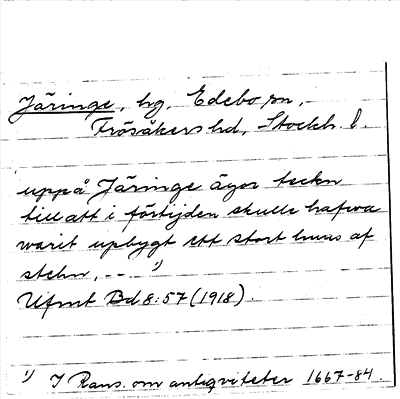 Järinge, hg, Edebo sn,
Frösåkers hd, Stockh. l.
uppå Järinge ägor teckn
till att i förtijden skulle hafwa
warit upbygt ett stort huus af
stehn, - - ¹)
Ufmt Bd 8:57 (1918).
¹) I Rans. om antiqviteter 1667-84.